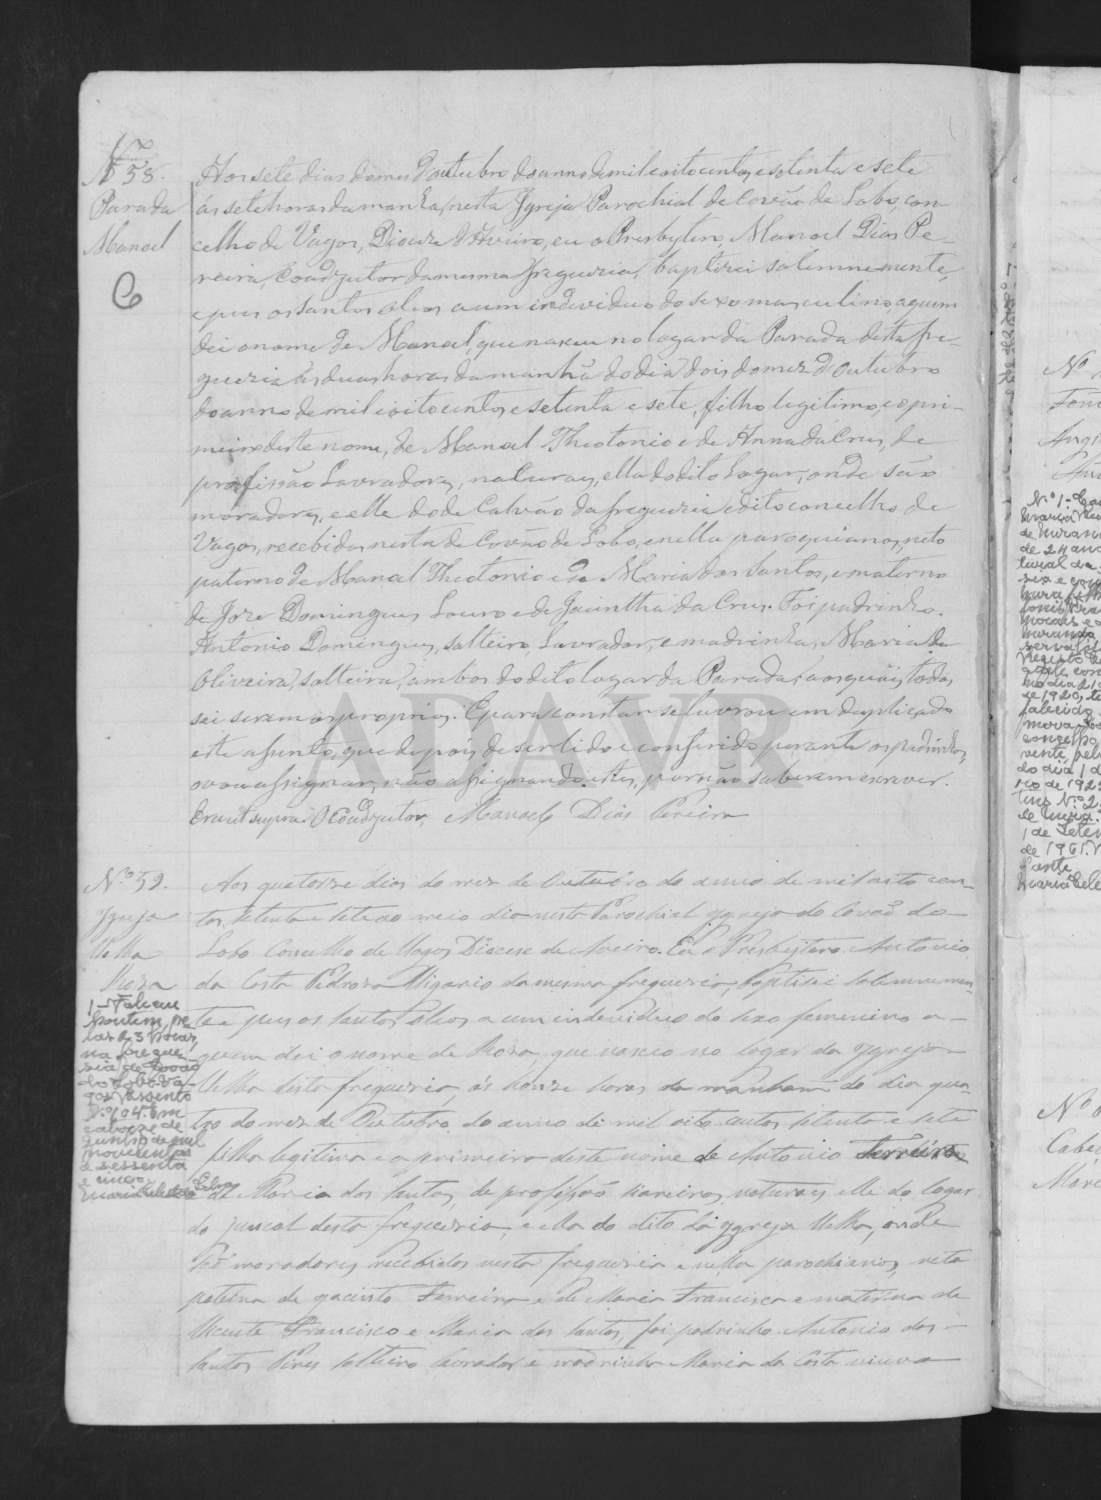 Nº 58.
Parada
Manoel
Aos sete dias do mez d'Outubro do anno de mil oito centos e setenta e sete
ás sete horas da manhã, nesta Igreja Parochial de Covão do Lobo, con-
celho de Vagos, Diocese d'Aveiro, eu o Presbytero, Manoel Dias Pe-
reira, Coadjutor da mesma freguezia, baptizei solemnemente,
e puz os santos oleos a um individuo do sexo masculino, a quem
dei o nome de Manoel, que nasceu no logar da Parada desta fre-
guezia ás duas horas da manhã do dia dois do mez d'Outubro
do anno de mil e oito centos e setenta e sete, filho legitimo, e o pri-
meiro deste nome, de Manoel Theotonio e de Anna da Cruz, de
profissão Lavradores, naturaes, ella do dito Logar, onde são
moradores, e elle do de Calvão da freguezia e dito concelho de
Vagos, recebidos nesta de Covão do Lobo, e nella paroquianos, neto
paterno de Manoel Theotonio e de Maria dos Santos, e materno
de Joze Domingues Louro e de Jacintha da Cruz. Foi padrinho
Antonio Domingues, solteiro, Lavrador, e madrinha, Maria de
Oliveira, solteira, ambos do dito logar da Parada, aos quaes todos
sei serem os proprios. E para constar se lavrou em duplicado
este assento, que depois de ser lido e conferido perante os padrinhos,
vou assignar, não assignando estes, por não saberem escrever.
Era ut supra. O Coadjutor, Manoel Dias Pereira
Nº 59.
Igreja
Velha
Roza
Aos quatorze dias do mez de Outubro do anno de mil oito cen-
tos, setenta e sete ao meio dia nesta Parochial Igreja do Covão do
Lobo Concelho de Vagos Diocese de Aveiro. Eu o Presbytero Antonio
da Costa Pedroza Vigario da mesma freguezia, baptizei solemnemen-
te e puz os santos Oleos a um individuo do sexo femenino a
quem dei o nome de Roza, que nasceu no logar da Igreja
Velha desta freguezia, ás honze horas da manham do dia qua-
tro do mez de Outubro do anno de mil oito centos setenta e sete
filha legitima e a primeira deste nome de Antonio Ferreira
e de Maria dos Santos, de profissão naturaes elle do logar
do Juncal desta freguezia, e ella do dito da Igreja Velha, onde
são moradores, recebidos nesta freguezia e nella parochianos, neta
paterna de Jacinto Ferreira e de Maria Francisca e materna de
Vicente Francisco e Maria dos Santos, foi padrinho Antonio dos
Santos Pires solteiro lavrador e madrinha Maria da Costa viuva
1- Faleceu
hontem, pe-
las 23 horas,
na fregue
sia de Covão
do Lobo-Va-
gos. Assento
Nº 104. Em
catorze de
Junho de mil
novecentos
e sessenta
e cinco.
ADAVR
Nº
Nº 1 - Cas
de 24 anos
fonso
Moraes e
1920
falecido
1 de Setem
de 1961
Nº 6
Cabe
Mari